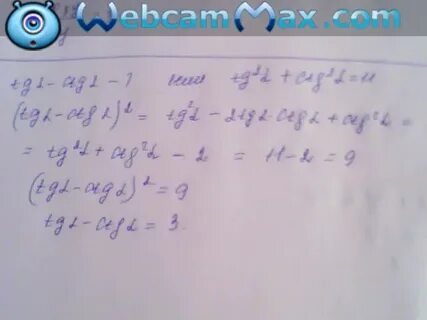 WebcamMax.com
tgα - ctgα - ? если tg²α + ctg²α = 11
(tgα - ctgα)² = tg²α - 2tgα·ctgα + ctg²α =
= tg²α + ctg²α - 2 = 11 - 2 = 9
(tgα - ctgα)² = 9
tgα - ctgα = 3.